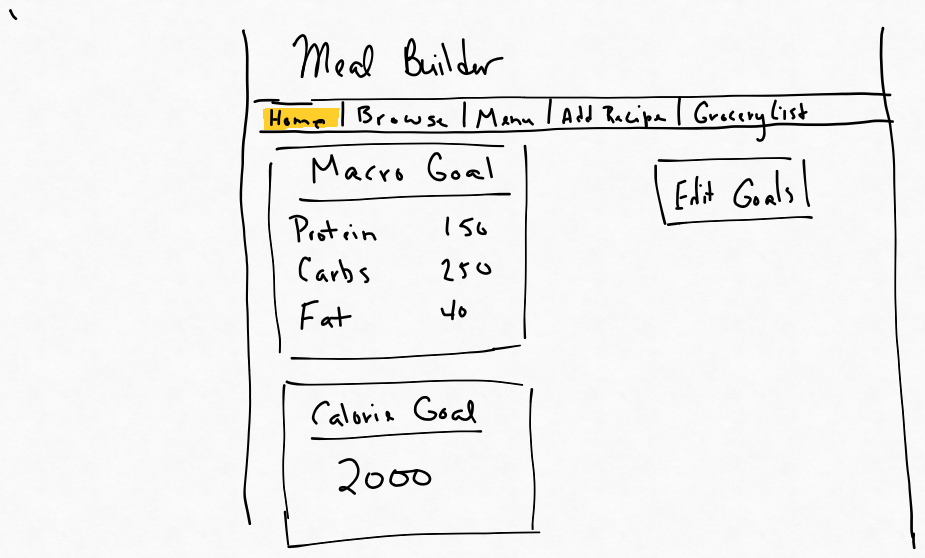 Meal Builder
Home Browse Menu Add Recipe Grocery List
Macro Goal
Edit Goals
Protein 150
Carbs 250
Fat 40
Calorie Goal
2000